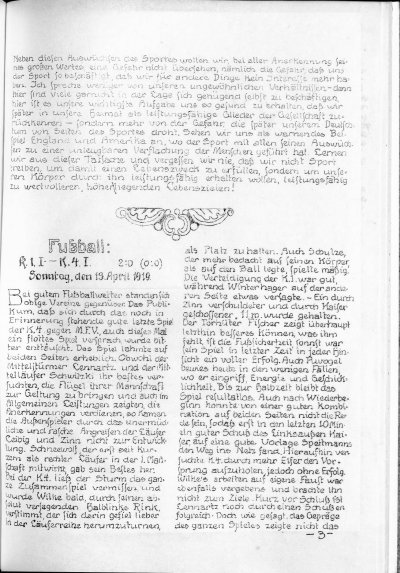 Neben diesen Auswüchsen des Sportes wollen wir bei aller Anerkennung sei-
nes großen Wertes eine Gefahr nicht übersehen, nämlich die Gefahr, daß uns
der Sport so beschäftigt, daß wir für andere Dinge kein Interesse mehr ha-
ben. Ich spreche weniger von unseren ungewöhnlichen Verhältnissen – denn
hier sind viele garnicht in der Lage sich genügend selbst zu beschäftigen,
hier ist es unsere wichtigste Aufgabe uns so gesund zu erhalten, daß wir
später in unsere Heimat als leistungsfähige Glieder der Gesellschaft zu-
rückkehren – sondern mehr von der Gefahr, die später unserem Deutsch-
tum von Seiten des Sportes droht. Sehen wir uns als warnendes Bei-
spiel England und Amerika an, wo der Sport mit allen seinen Auswüch-
sen zu einer unleugbaren Verflachung der Menschen geführt hat. Lernen
wir aus dieser Tatsache und vergessen wir nie, daß wir nicht Sport
treiben, um damit einen Lebenszweck zu erfüllen, sondern um unse-
ren Körper durch ihn leistungsfähig erhalten wollen, leistungsfähig
zu wertvolleren, höherfliegenden Lebenszielen!
Fußball:
K.1.I – K.4.I 2:0 (0:0)
Sonntag, den 13. April 1919
Bei gutem Fußballwetter standen sich
obige Vereine gegenüber. Das Publi-
kum, daß sich durch das noch in
Erinnerung stehende gute letzte Spiel
der K.4 gegen M.F.V. auch dieses Mal
ein flottes Spiel versprach, wurde bit-
ter enttäuscht. Das Spiel lahmte auf
beiden Seiten erheblich. Obwohl der
Mittelstürmer Lennartz und der Mit-
telläufer Schwenki ihr bestes ver-
suchten, die Flügel ihrer Mannschaft
zur Geltung zu bringen und auch im
Allgemeinen Leistungen zeigten, die
Anerkennungen verdienen, so kamen
die Außenspieler durch das unermüd-
liche und rasche Angreifen der Läufer
Leibig und Zinn nicht zur Entwick-
lung. Schneewolf, der erst seit Kur-
zem als rechter Läufer in der I. Mann-
schaft mitwirkt, gab sein Bestes her.
Bei der K.4. ließ der Sturm das gan-
ze Zusammenspiel vermissen und
wurde Wilke bald, durch seinen ab-
solut versagenden Halblinke Rink
verstimmt, der sich darin gefiel lieber
in der Läuferreihe herumzuturnen,
als Platz zu halten. Auch Schulze,
der mehr bedacht auf seinen Körper
als auf den Ball legte, spielte mäßig.
Die Verteidigung der K.1. war gut,
während Winterhager auf der ande-
ren Seite etwas versagte. – Ein durch
Zinn verschuldeter und durch Kaiser
geschossener, 11 m, wurde gehalten.
Der Torhüter Fischer zeigt überhaupt
letzthin besseres Können, was ihm
fehlt ist die Fußsicherheit sonst war
sein Spiel in letzter Zeit in jeder Hin-
sicht ein voller Erfolg. Auch Ruvogel
bewies heute in den wenigen Fällen,
wo er eingriff, Energie und Geschick-
lichkeit. Bis zur Halbzeit bleibt das
Spiel resultatlos. Auch nach Wiederbe-
ginn konnte von einer guten Kombi-
nation auf beiden Seiten nicht die Re-
de sein, so daß erst in den letzten 10 Min
ein guter Schuß des Linksaußen Kai-
ser auf eine gute Vorlage Speitmanns
den Weg ins Netz fand. Hieraufhin ver-
suchte K.4. durch mehr Eifer den Vor-
sprung aufzuholen, jedoch ohne Erfolg.
Wilke's arbeiten auf eigene Faust war
ebenfalls vergebens und brachte ihn
nicht zum Ziele. Kurz vor Schluß ist
Lennartz noch durch einen Schuß er-
folgreich. Doch wie gesagt, das Gepräge
des ganzen Spieles zeigte nicht das
– 3 –